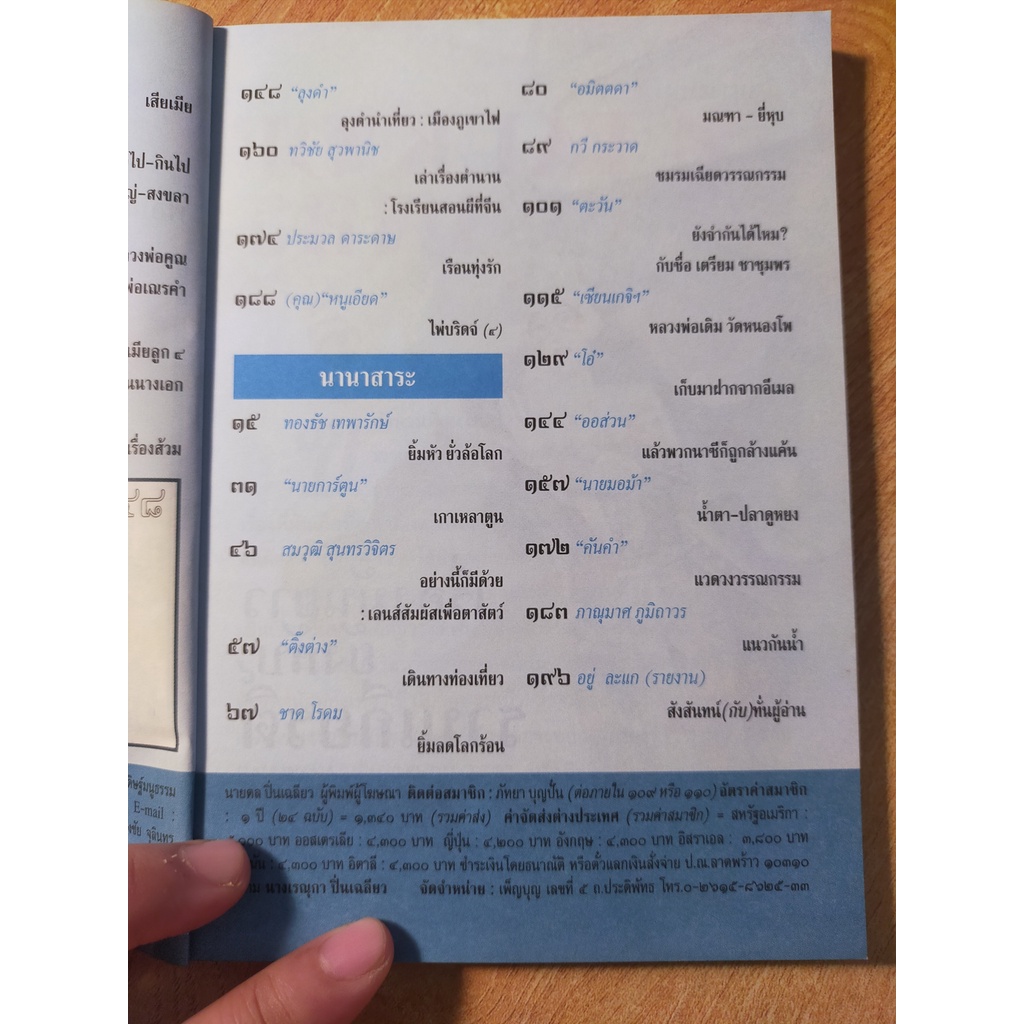 เสียเมีย
ไป-กินไป
ญ่-สงขลา
วงพ่อคูณ
พ่อเณรคำ
เมียลูก ๔
นนางเอก
เรื่องส้วม
๔๘
E-mail :
๑๔๘ “ลุงคำ”
ลุงคำนำเที่ยว : เมืองภูเขาไฟ
๑๖๐ ทวิชัย สุวพานิช
เล่าเรื่องตำนาน
: โรงเรียนสอนผีที่จีน
๑๗๔ ประมวล ดาระดาษ
เรือนทุ่งรัก
๑๘๘ (คุณ)“หนูเอียด”
ไพ่บริดจ์ (๙)
นานาสาระ
๑๕ ทองธัช เทพารักษ์
ยิ้มหัว ยั่วล้อโลก
๓๑ “นายการ์ตูน”
เกาเหลาตูน
๔๖ สมวุฒิ สุนทรวิจิตร
อย่างนี้ก็มีด้วย
: เลนส์สัมผัสเพื่อตาสัตว์
๕๗ “ติ๊งต่าง”
เดินทางท่องเที่ยว
๖๗ ชาด โรดม
ยิ้มลดโลกร้อน
๘๐ “อมิตตดา”
มณฑา - ยี่หุบ
๘๙ กวี กระวาด
ชมรมเฉียดวรรณกรรม
๑๐๑ “ตะวัน”
ยังจำกันได้ไหม?
กับชื่อ เตรียม ชาชุมพร
๑๑๕ “เซียนเกจิฯ”
หลวงพ่อเดิม วัดหนองโพ
๑๒๙ “โอ๋”
เก็บมาฝากจากอีเมล
๑๔๔ “ออส่วน”
แล้วพวกนาซีก็ถูกล้างแค้น
๑๕๗ “นายมอม้า”
น้ำตา-ปลาดูหยง
๑๗๒ “คันคำ”
แวดวงวรรณกรรม
๑๘๓ ภาณุมาศ ภูมิถาวร
แนวกันน้ำ
๑๙๖ อยู่ ละแก (รายงาน)
สังสันทน์(กับ)ทั่นผู้อ่าน
นายดล ปิ่นเฉลียว ผู้พิมพ์ผู้โฆษณา ติดต่อสมาชิก : ภัทยา บุญปั้น (ต่อภายใน ๑๐๙ หรือ ๑๑๐) อัตราค่าสมาชิก
: ๑ ปี (๒๔ ฉบับ) = ๑,๓๔๐ บาท (รวมค่าส่ง) ค่าจัดส่งต่างประเทศ (รวมค่าสมาชิก) = สหรัฐอเมริกา :
๑๐๐ บาท ออสเตรเลีย : ๔,๓๐๐ บาท ญี่ปุ่น : ๔,๒๐๐ บาท อังกฤษ : ๔,๓๐๐ บาท อิสราเอล : ๓,๘๐๐ บาท
: ๔,๓๐๐ บาท อิตาลี : ๔,๓๐๐ บาท ชำระเงินโดยธนาณัติ หรือตั๋วแลกเงินสั่งจ่าย ป.ณ.ลาดพร้าว ๑๐๓๑๐
นางเรณุกา ปิ่นเฉลียว จัดจำหน่าย : เพ็ญบุญ เลขที่ ๕ ถ.ประดิพัทธ โทร.๐-๒๖๑๕-๘๖๒๕-๓๓